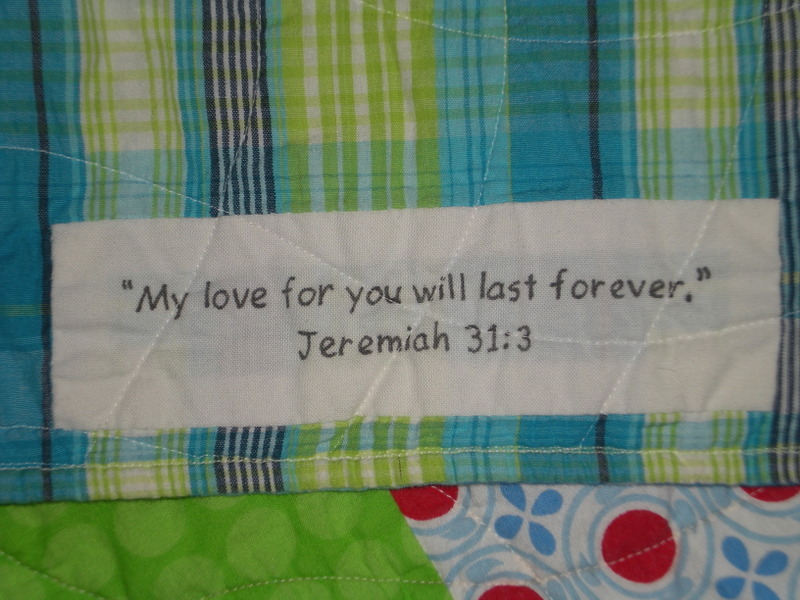 “My love for you will last forever.”
Jeremiah 31:3